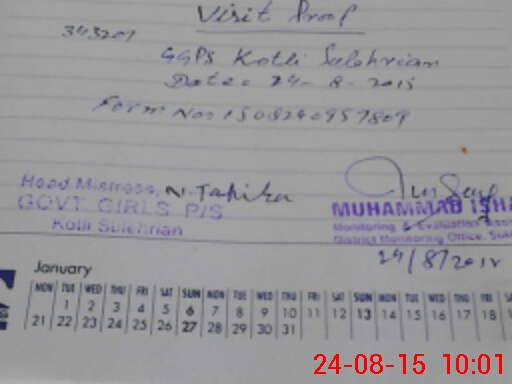 Visit Proof
343201
GGPS Kotli Sulehrian
Date: 24-8-2015
Form No: 1508240957809
Head Mistress, N. Tahira
GOVT. GIRLS P/S
Kotli Sulehrian
MUHAMMAD ISHA
Monitoring & Evaluation Assis
District Monitoring Office, Sial
24/8/2015
January
MON TUE WED THU FRI SAT SUN MON TUE WED THU FRI SAT SUN MON TUE WED THU FRI
1 2 3 4 5 6 7 8 9 10 11 12 13 14 15 16 17 18
21 22 23 24 25 26 27 28 29 30 31
24-08-15 10:01